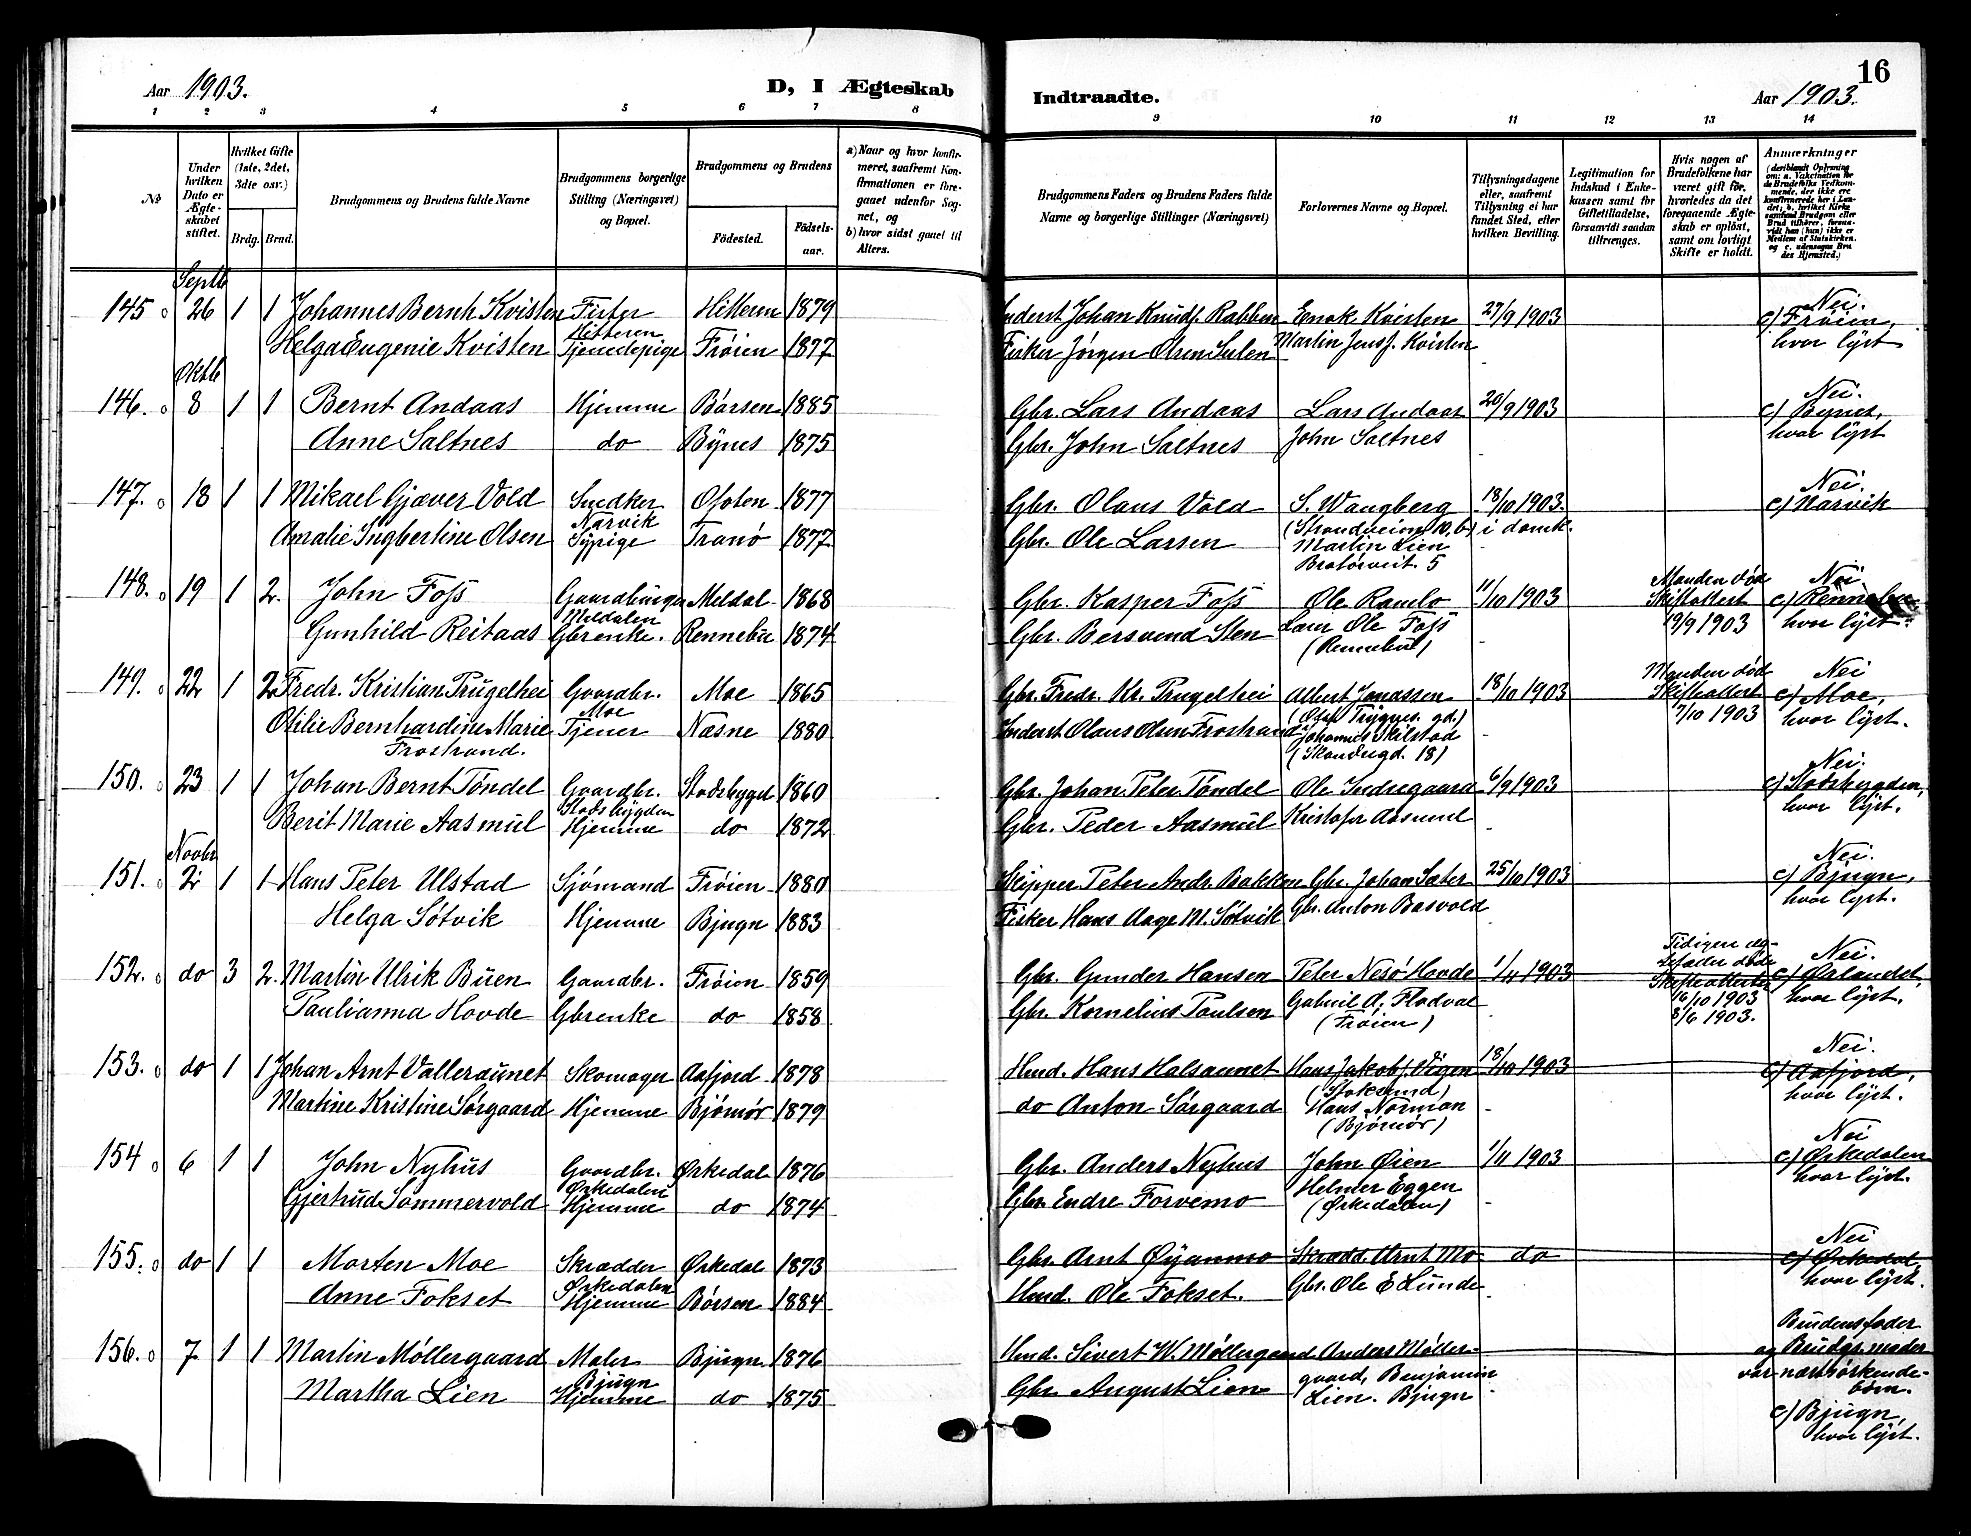 Aar 1903. D, I Ægteskab Indtraadte. Aar 1903. 16
1 2 3 4 5 6 7 8 9 10 11 12 13 14
No
Under hvilken Dato er Ægteskabet stiftet.
Hvilket Gifte (1ste, 2det, 3die osv.)
Brdg. Brud.
Brudgommens og Brudens fulde Navne
Brudgommens borgerlige Stilling (Næringsvei) og Bopæl.
Brudgommens og Brudens
Fødested. Fødselsaar.
a) Naar og hvor konfirmeret, saafremt Konfirmationen er foregaaet udenfor Sognet, og
b) hvor sidst gaaet til Alters.
Brudgommens Faders og Brudens Faders fulde Navne og borgerlige Stillinger (Næringsvei)
Forlovernes Navne og Bopæl.
Tillysningsdagene eller, saafremt Tillysning ei har fundet Sted, efter hvilken Bevilling.
Legitimation for Indskud i Enkekassen samt for Giftetilladelse, forsaavidt saadan tiltrænges.
Hvis nogen af Brudefolkene har været gift før, hvorledes da det foregaaende Ægteskab er opløst, samt om lovligt Skifte er holdt.
Anmærkninger
Septb
145 26 1 1 Johannes Bernh Kvisten Fisker Hitteren 1879 Inderst Johan Knuds. Rabben Enok Kvisten 27/9 1903 Nei. c) Frøien,
Hitteren
Helga Eugenie Kvisten Tjenestepige Frøien 1877 Fisker Jørgen Olsen Sulen Martin Jensf. Kvisten hvor lyst
Oktb
146. 8 1 1 Bernt Andaas Hjemme Børsen 1885 Gbr. Lars Andaas Lars Andaas 20/9 1903 Nei. c) Bynes,
Anne Saltnes do Bynes 1875 Gbr. John Saltnes John Saltnes hvor lyst
147. 18 1 1 Mikael Gjæver Vold Snedker Ofoten 1877 Gbr. Olaus Vold S. Wangberg 18/10 1903. Nei. c) Narvik
Narvik
Amalie Ingbertine Olsen Sypige Tranø 1877 Gbr. Ole Larsen (Strandveien 10, b) i domk.
Martin Lien
Bratørveit. 5
148. 19 1 2. John Foss Gaardbruger Meldal 1868 Gbr. Kasper Foss Ole Ramlo 11/10 1903 Manden død Skifteattest 19/9 1903 Nei c) Rennebu
Meldalen
Gunhild Reitaas Gbrenke. Rennebu 1874 Gbr. Bersvend Sten Lærer Ole Foss hvor lyst.
(Rennebu)
149. 22 1 2 Fredr. Kristian Prugelhei Gaardbr. Moe 1865 Gbr. Fredr. Kr. Prugelhei Albert Jonassen 18/10 1903 Manden død Skifteattest 7/10 1903 Nei c) Moe,
Moe
Otilie Bernhardine Marie Tjener Næsne 1880 Inderst Olaus Olsen Frostrand hvor lyst.
Frostrand. Johannes Skilstad
(Strandugd. 18)
150. 23 1 1 Johan Bernt Tøndel Gaardbr. Stadsbygd 1860 Gbr. Johan Peter Tøndel Ole Indregaard 6/9 1903 Nei. c) Stadsbygden,
Stadsbygden
Berit Marie Aasmul Hjemme do 1872 Gbr. Peder Aasmul Kristofer Aasmul hvor lyst.
Novbr
151. 2 1 1 Hans Peter Ulstad Sjømand Frøien 1880 Skipper Peter Andr. Bakken Gbr. Johan Sæter 25/10 1903 Nei. c) Bjugn,
Helga Søtvik Hjemme Bjugn 1883 Fisker Hans Aage M. Søtvik Gbr. Anton Basvold hvor lyst.
152. do 3 2. Martin Ulrik Buen Gaardbr. Frøien 1859 Gbr. Gunder Hansen Peter Nesø Hovde 1/11 1903 Tidigere ægtefæller døde Skifteattester 16/10 1903 3/6 1903. Nei. c) Ørlandet,
Paulianna Hovde Gbrenke do 1858 Gbr. Kornelius Paulsen Gabriel A. Fladval hvor lyst.
(Frøien)
153. do 1 1 Johan Arnt Valleraunet Skomager Aafjord 1878 Hmd. Hans Halsaunet Hans Jakobs. Vigen 18/10 1903 Nei. c) Aafjord,
(Stoksund)
Martine Kristine Sørgaard Hjemme Bjørnør 1879 do Anton Sørgaard Hans Norman hvor lyst.
(Bjørnør)
154 6 1 1 John Nyhus Gaardbr. Ørkedal 1876 Gbr. Anders Nyhus John Øien 1/11 1903 Nei c) Ørkedalen
Ørkedalen
Gjertrud Sommervold Hjemme do 1874 Gbr. Endre Forvemo Helmer Eggen hvor lyst.
(Ørkedalen)
155. do 1 1 Morten Moe Skrædder Ørkedal 1873 Gbr. Arnt Øyanmo Skrædd. Arnt Mo do Nei c) Ørkedal,
Ørkedalen
Anne Fokset Hjemme Børsen 1884 Hmd. Ole Fokset. Gbr. Ole E Lunde hvor lyst.
156. 7 1 1 Martin Møllergaard Maler Bjugn 1876 Hmd. Sivert W. Møllergaard Anders Møller- Brudens fader og Brudgs. moder
Bjugn
Martha Lien Hjemme do 1875 Gbr August Lien gaard, Benjamin var næstsøskendebørn.
Lien. Bjugn
c) Bjugn,
hvor lyst.